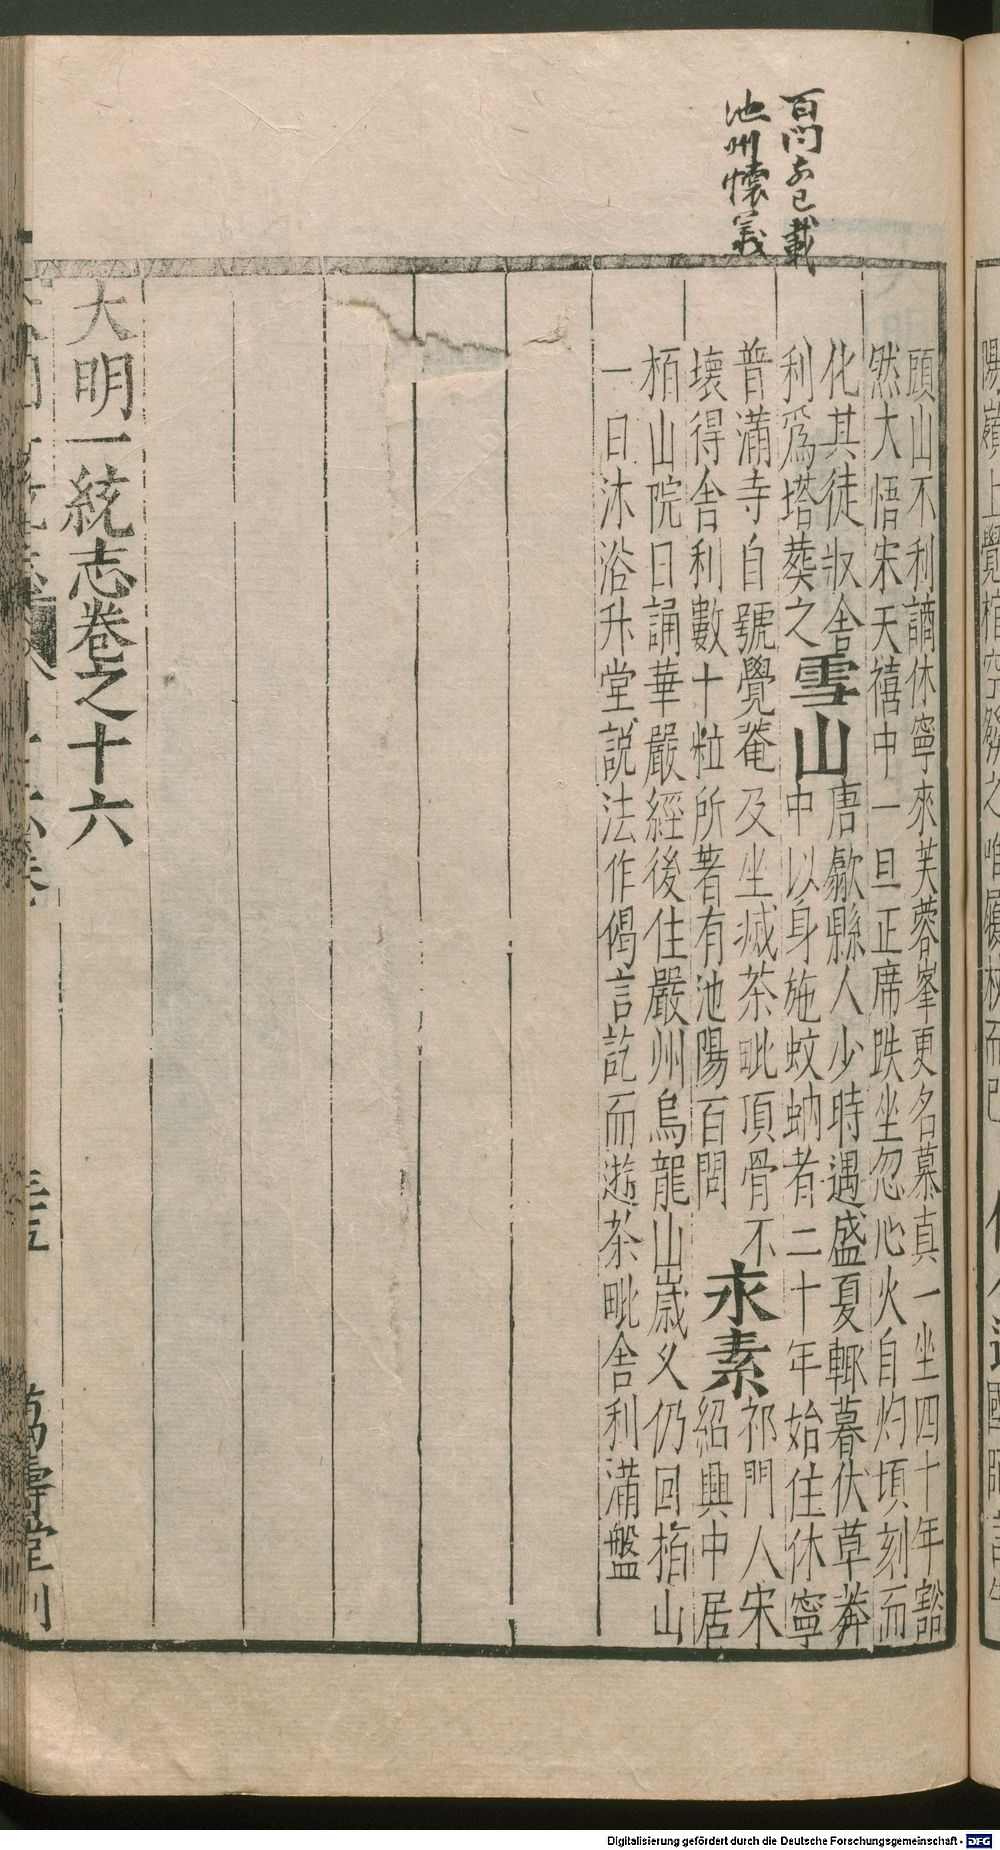 百問前已載
池州懷義
頭山不利謫休寧來芙蓉峯更名慕真一坐四十年豁
然大悟宋天禧中一旦正席趺坐忽心火自灼頃刻而
化其徒収舍
利爲塔葬之
雪山
唐歙縣人少時遇盛夏輒暮伏草莽
中以身施蚊蚋者二十年始住休寧
普滿寺自號覺菴及坐㓕茶毗頂骨不
壞得舍利數十粒所著有池陽百問
永素
祁門人宋
紹興中居
栢山院日誦華嚴經後住嚴州烏龍山歲久仍回栢山
一日沐浴升堂説法作偈言訖而逝茶毗舍利滿盤
大明一統志卷之十六
萬壽堂刊
Digitalisierung gefördert durch die Deutsche Forschungsgemeinschaft - DFG